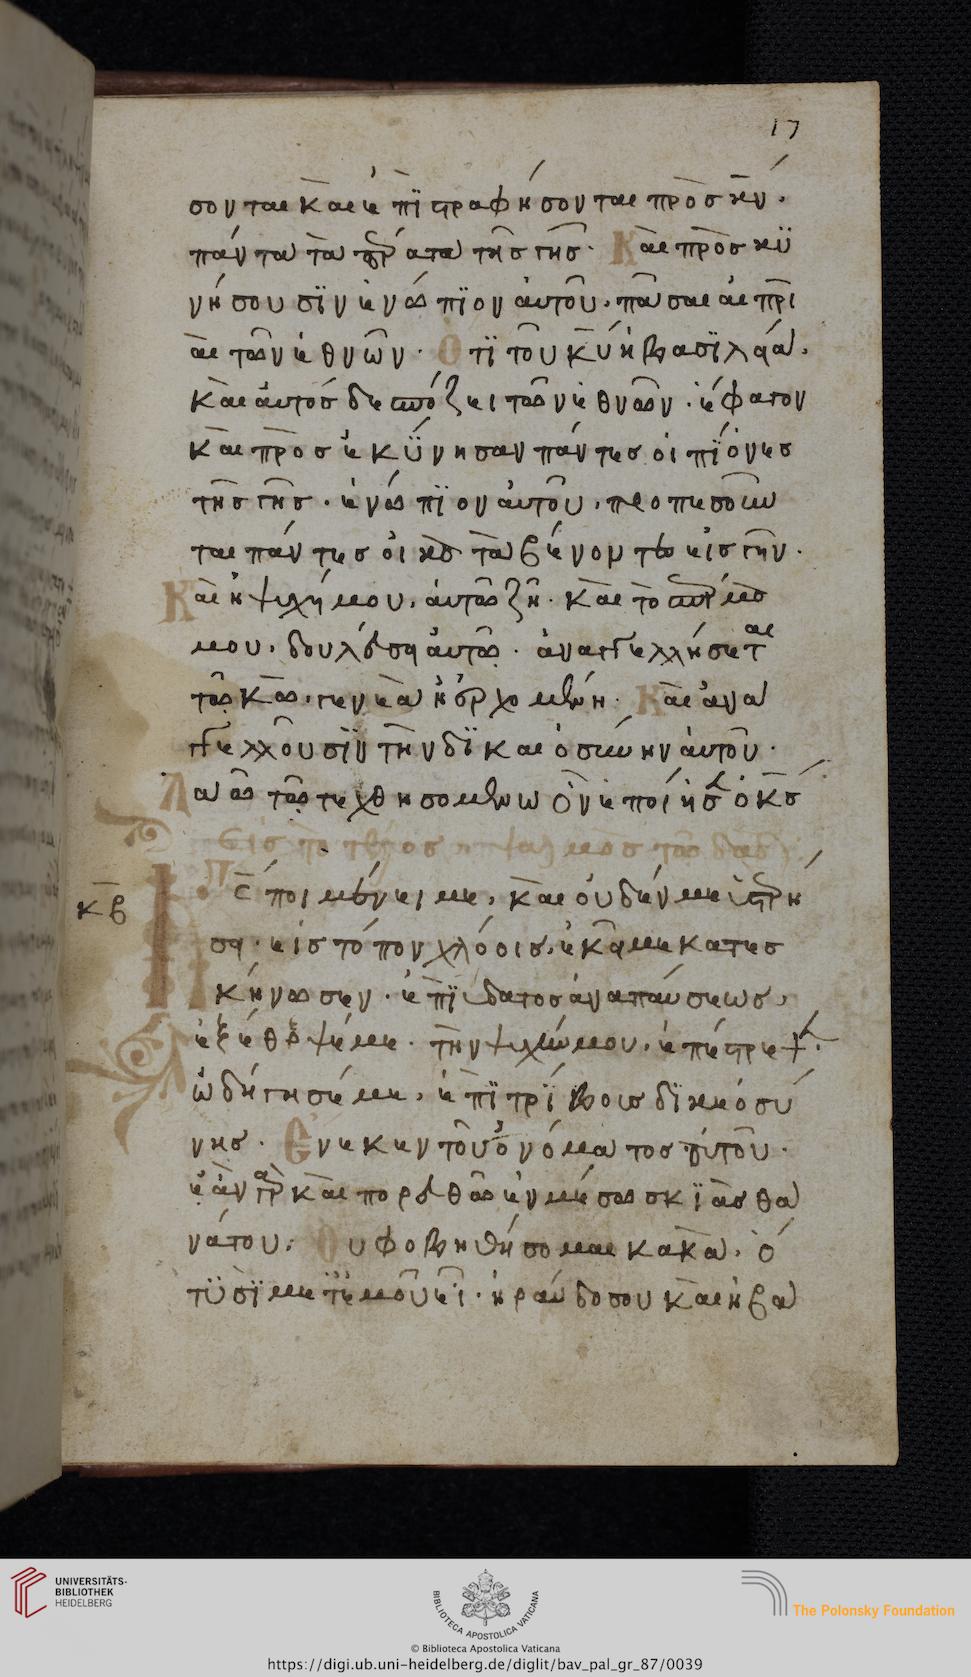 17
σονται καὶ ἐπιστραφήσονται πρὸς κν̄·
πάντα τὰ πέρατα τῆς γῆς· Καὶ προσκυ
νήσουσιν ἐνώπιον αὐτοῦ, πᾶσαι αἱ πρι
αὶ τῶν ἐθνῶν· Ὅτι τοῦ κῡ ἡ βασιλεία,
καὶ αὐτὸς δεσπόζει τῶν ἐθνῶν· ἔφαγον
καὶ προσεκύνησαν πάντες οἱ πίονες
τῆς γῆς· ἐνώπιον αὐτοῦ, προπεσοῦν
ται πάντες οἱ καταβαίνοντες εἰς γῆν·
Καὶ ἡ ψυχή μου, αὐτῷ ζῇ· καὶ τὸ σπέρμα
μου, δουλεύσει αὐτῷ· ἀναγγελλήσεται
τῷ κω̄, γενεὰ ἡ ἐρχομένη· Καὶ ἀνα
γγελλοῦσιν τὴν δικαιοσύνην αὐτοῦ·
Λαῷ τῷ τεχθησομένω ὃν ἐποίησεν ὁ κς̄
Εἰς τὸ τέλος ψαλμὸς τῷ δαδ
κβ
Κς̄ ποιμένει με, καὶ οὐδέν με ὑστερή
σει· εἰς τόπον χλόοις, ἐκεῖ με κατεσ
κήνωσεν· ἐπὶ ὕδατος ἀναπαύσεως,
ἐξέθρεψέ με· τὴν ψυχήν μου, ἐπέστρεψεν·
ὡδήγησέ με, ἐπὶ τρίβοις δικαιοσύ
νης· Ἕνεκεν τοῦ ὀνόματος αὐτοῦ·
ἐὰν γὰρ καὶ πορευθῶ ἐν μέσω σκιᾶς θα
νάτου, Οὐ φοβηθήσομαι κακά, ὅ
τι σὺ μετ' ἐμοῦ εἶ· ἡ ράβδος σου καὶ ἡ βα
UNIVERSITÄTS-
BIBLIOTHEK
HEIDELBERG
BIBLIOTECA APOSTOLICA VATICANA
The Polonsky Foundation
© Biblioteca Apostolica Vaticana
https://digi.ub.uni-heidelberg.de/diglit/bav_pal_gr_87/0039